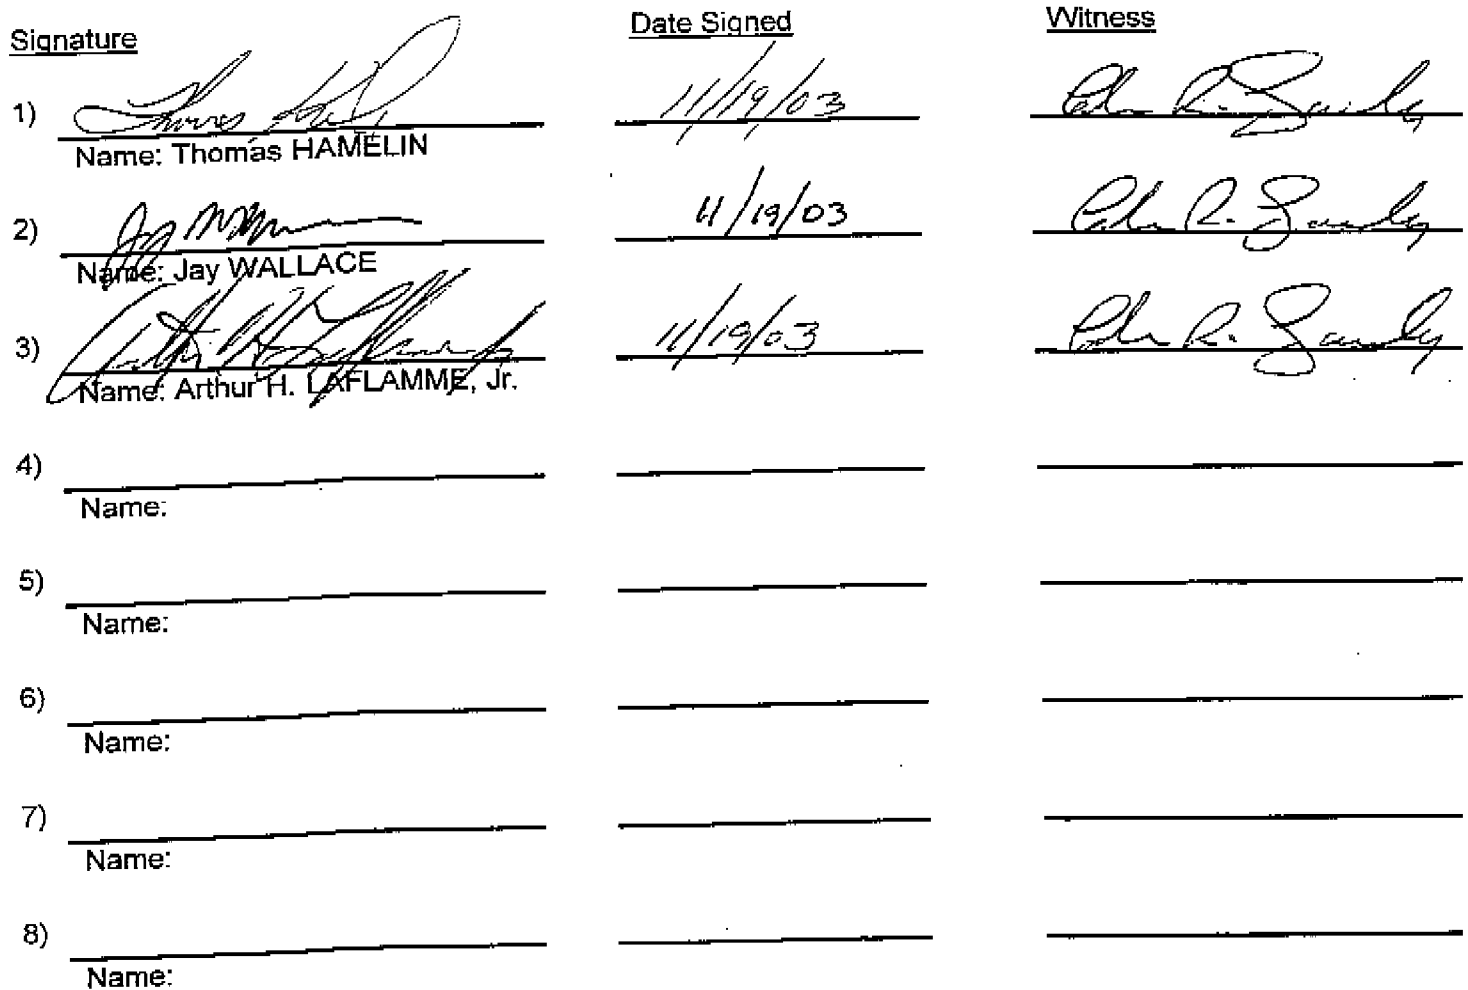 Signature Date Signed Witness
1) 11/19/03
Name: Thomas HAMELIN
2) 11/19/03
Name: Jay WALLACE
3) 11/19/03
Name: Arthur H. LAFLAMME, Jr.
4)
Name:
5)
Name:
6)
Name:
7)
Name:
8)
Name: